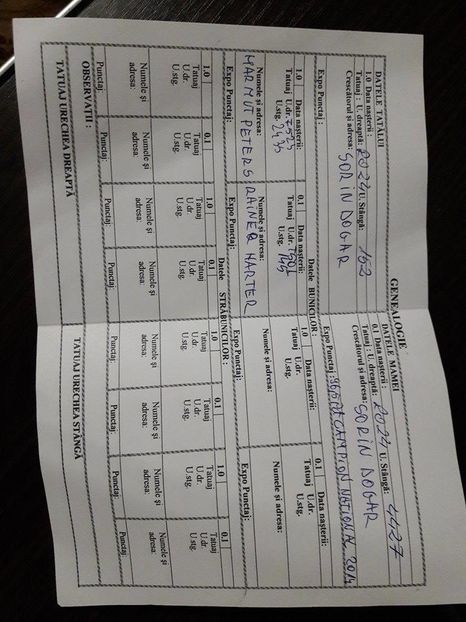 GENEALOGIE
DATELE TATĂLUI
1.0 Data nașterii :
Tatuaj : U. dreaptă: 2024 U. Stângă: 152
Crescătorul și adresa: SORIN DOGAR
Expo Punctaj :
DATELE MAMEI
0.1 Data nașterii :
Tatuaj : U. dreaptă: 2024 U. Stângă: 4427
Crescătorul și adresa: SORIN DOGAR
Expo Punctaj: CAMPION NATIONAL
Datele BUNICILOR :
1.0 Data nașterii:
Tatuaj U.dr.
U.stg. 2435
Numele și adresa:
MARMUT PETERS
Expo Punctaj:
0.1 Data nașterii:
Tatuaj U.dr.
U.stg. 145
Numele și adresa:
RAINER HARTER
Expo Punctaj:
1.0 Data nașterii:
Tatuaj U.dr.
U.stg.
Numele și adresa:
Expo Punctaj:
0.1 Data nașterii:
Tatuaj U.dr.
U.stg.
Numele și adresa:
Expo Punctaj:
Datele STRĂBUNICILOR :
1.0
Tatuaj
U.dr
U.stg.
Numele și
adresa:
Punctaj:
0.1
Tatuaj
U.dr
U.stg.
Numele și
adresa:
Punctaj:
1.0
Tatuaj
U.dr
U.stg.
Numele și
adresa:
Punctaj:
0.1
Tatuaj
U.dr
U.stg.
Numele și
adresa:
Punctaj:
1.0
Tatuaj
U.dr
U.stg.
Numele și
adresa:
Punctaj:
0.1
Tatuaj
U.dr
U.stg.
Numele și
adresa:
Punctaj:
1.0
Tatuaj
U.dr
U.stg.
Numele și
adresa:
Punctaj:
0.1
Tatuaj
U.dr
U.stg.
Numele și
adresa:
Punctaj:
OBSERVAȚII :
TATUAJ URECHEA DREAPTĂ
TATUAJ URECHEA STÂNGĂ